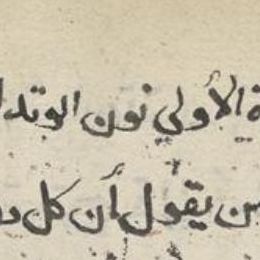 ة الأولي نون الوتد ا
ن يقول أن كل